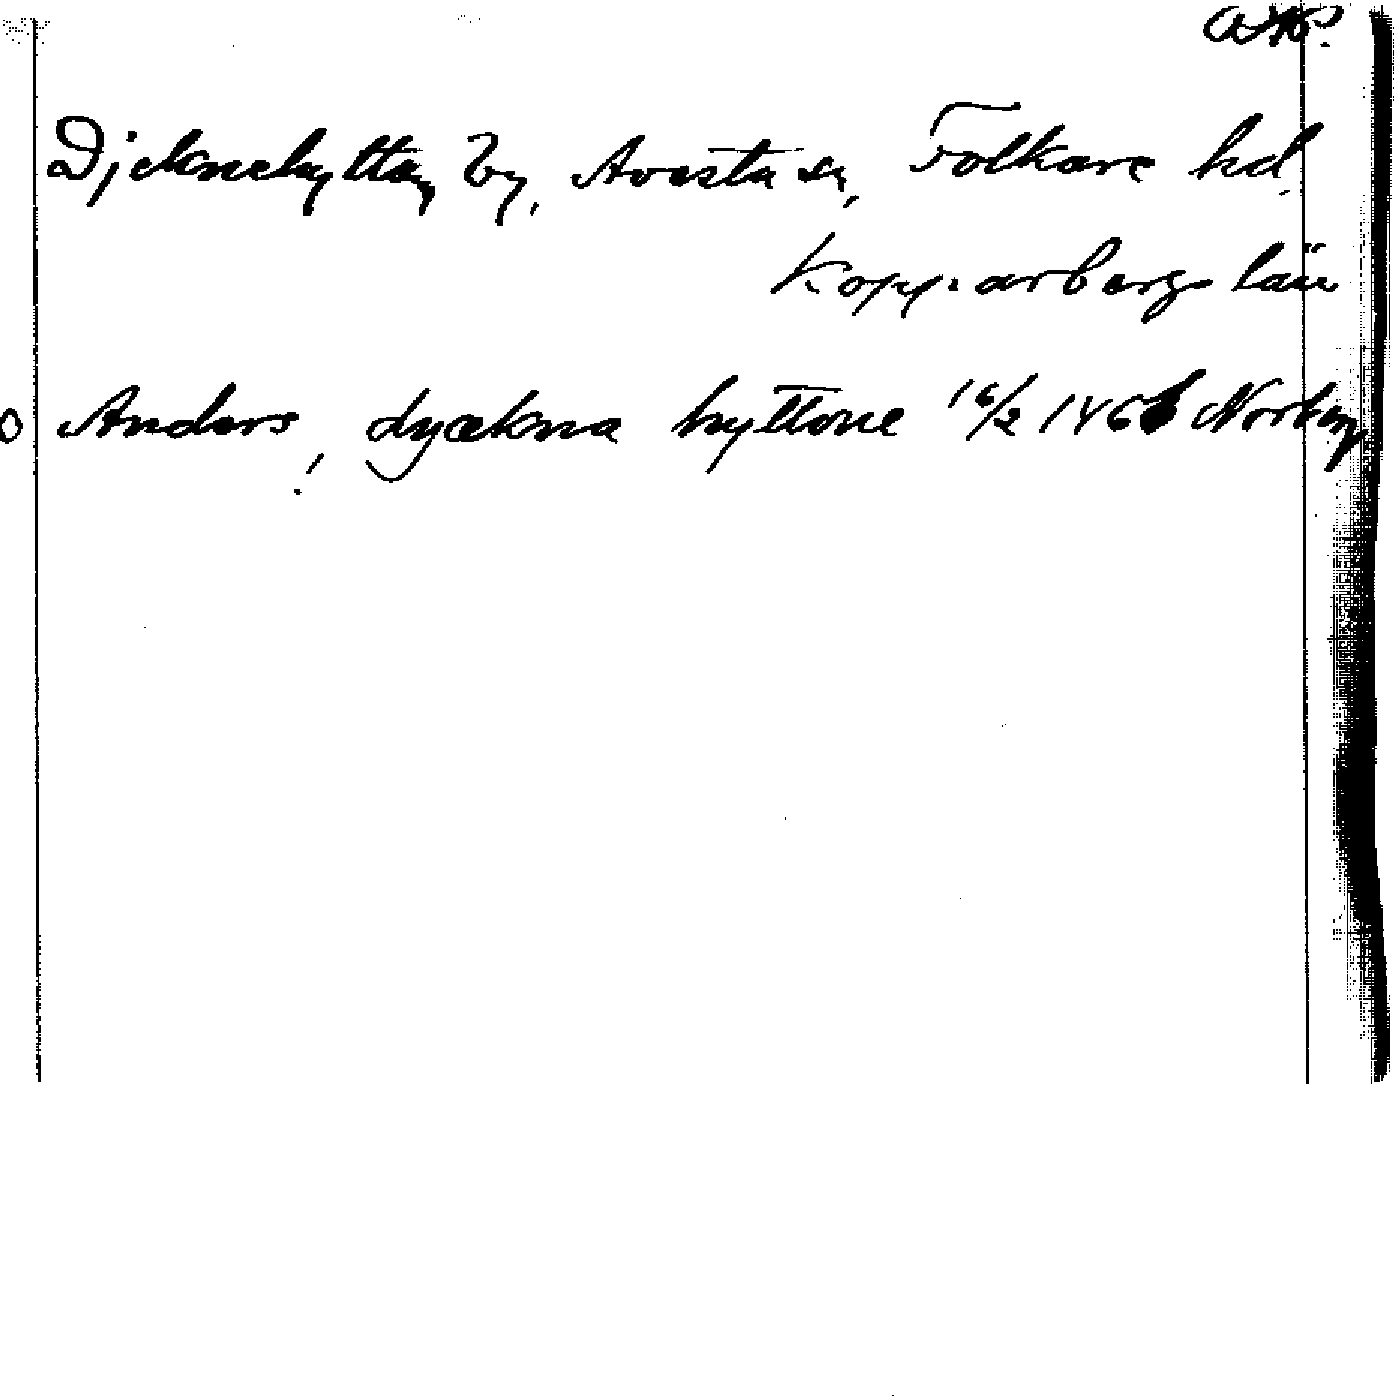 Djeknehyttan, by, Avesta sn, Folkare hd.
Kopparbergs län
Anders, dyækna hyttone 16/2 1466 Norberg